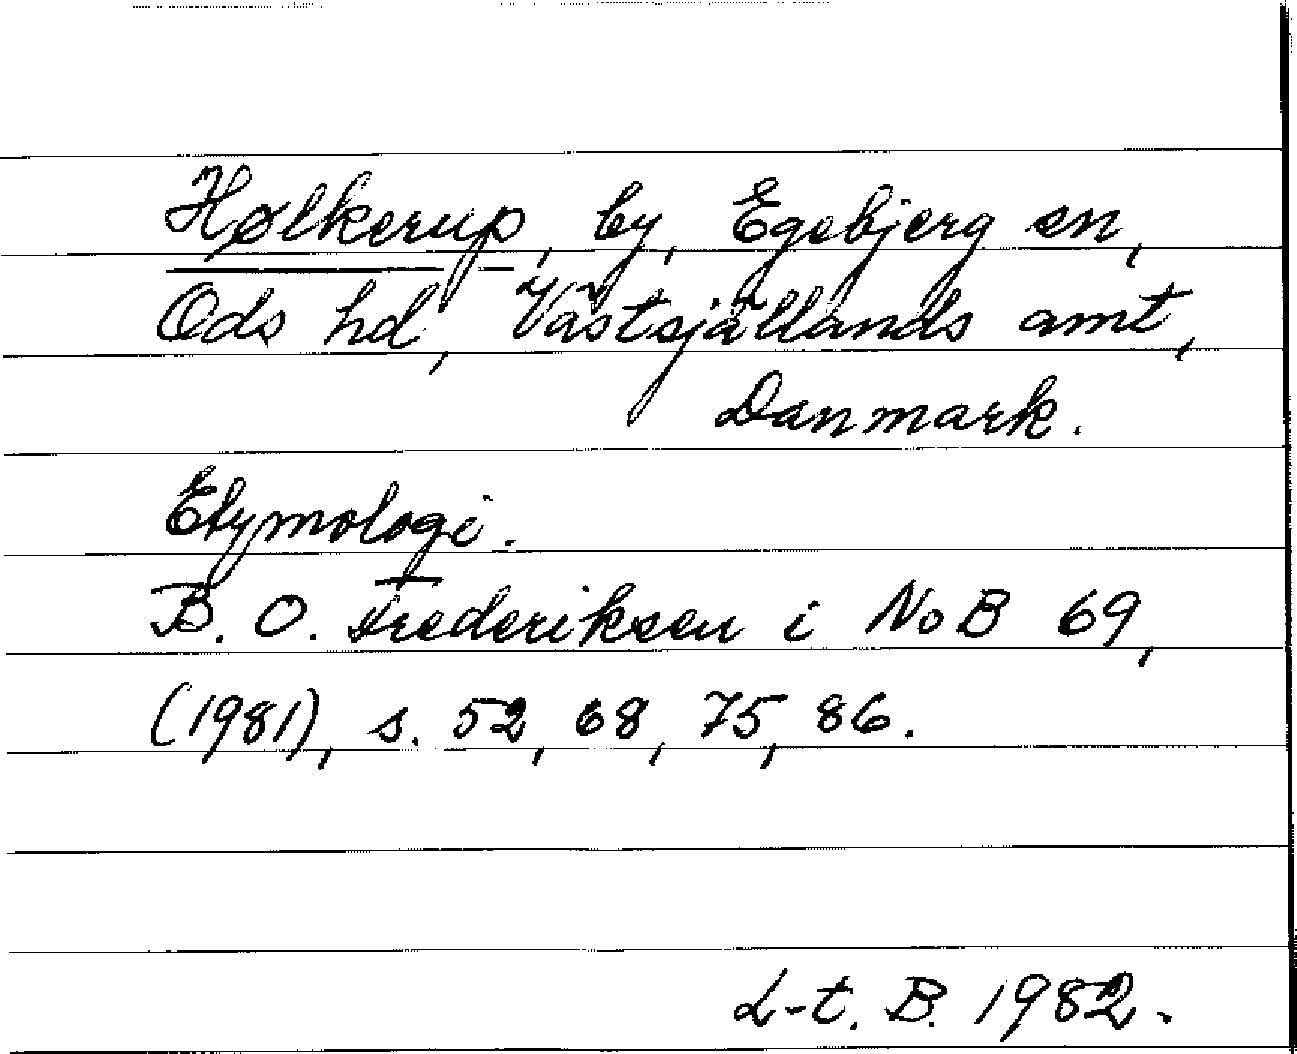 Hølkerup, by, Egebjerg sn,
Ods hd, Västsjällands amt,
Danmark.
Etymologi.
B. O. Frederiksen i NoB 69,
(1981), s. 52, 68, 75, 86.
L-t. B. 1982.